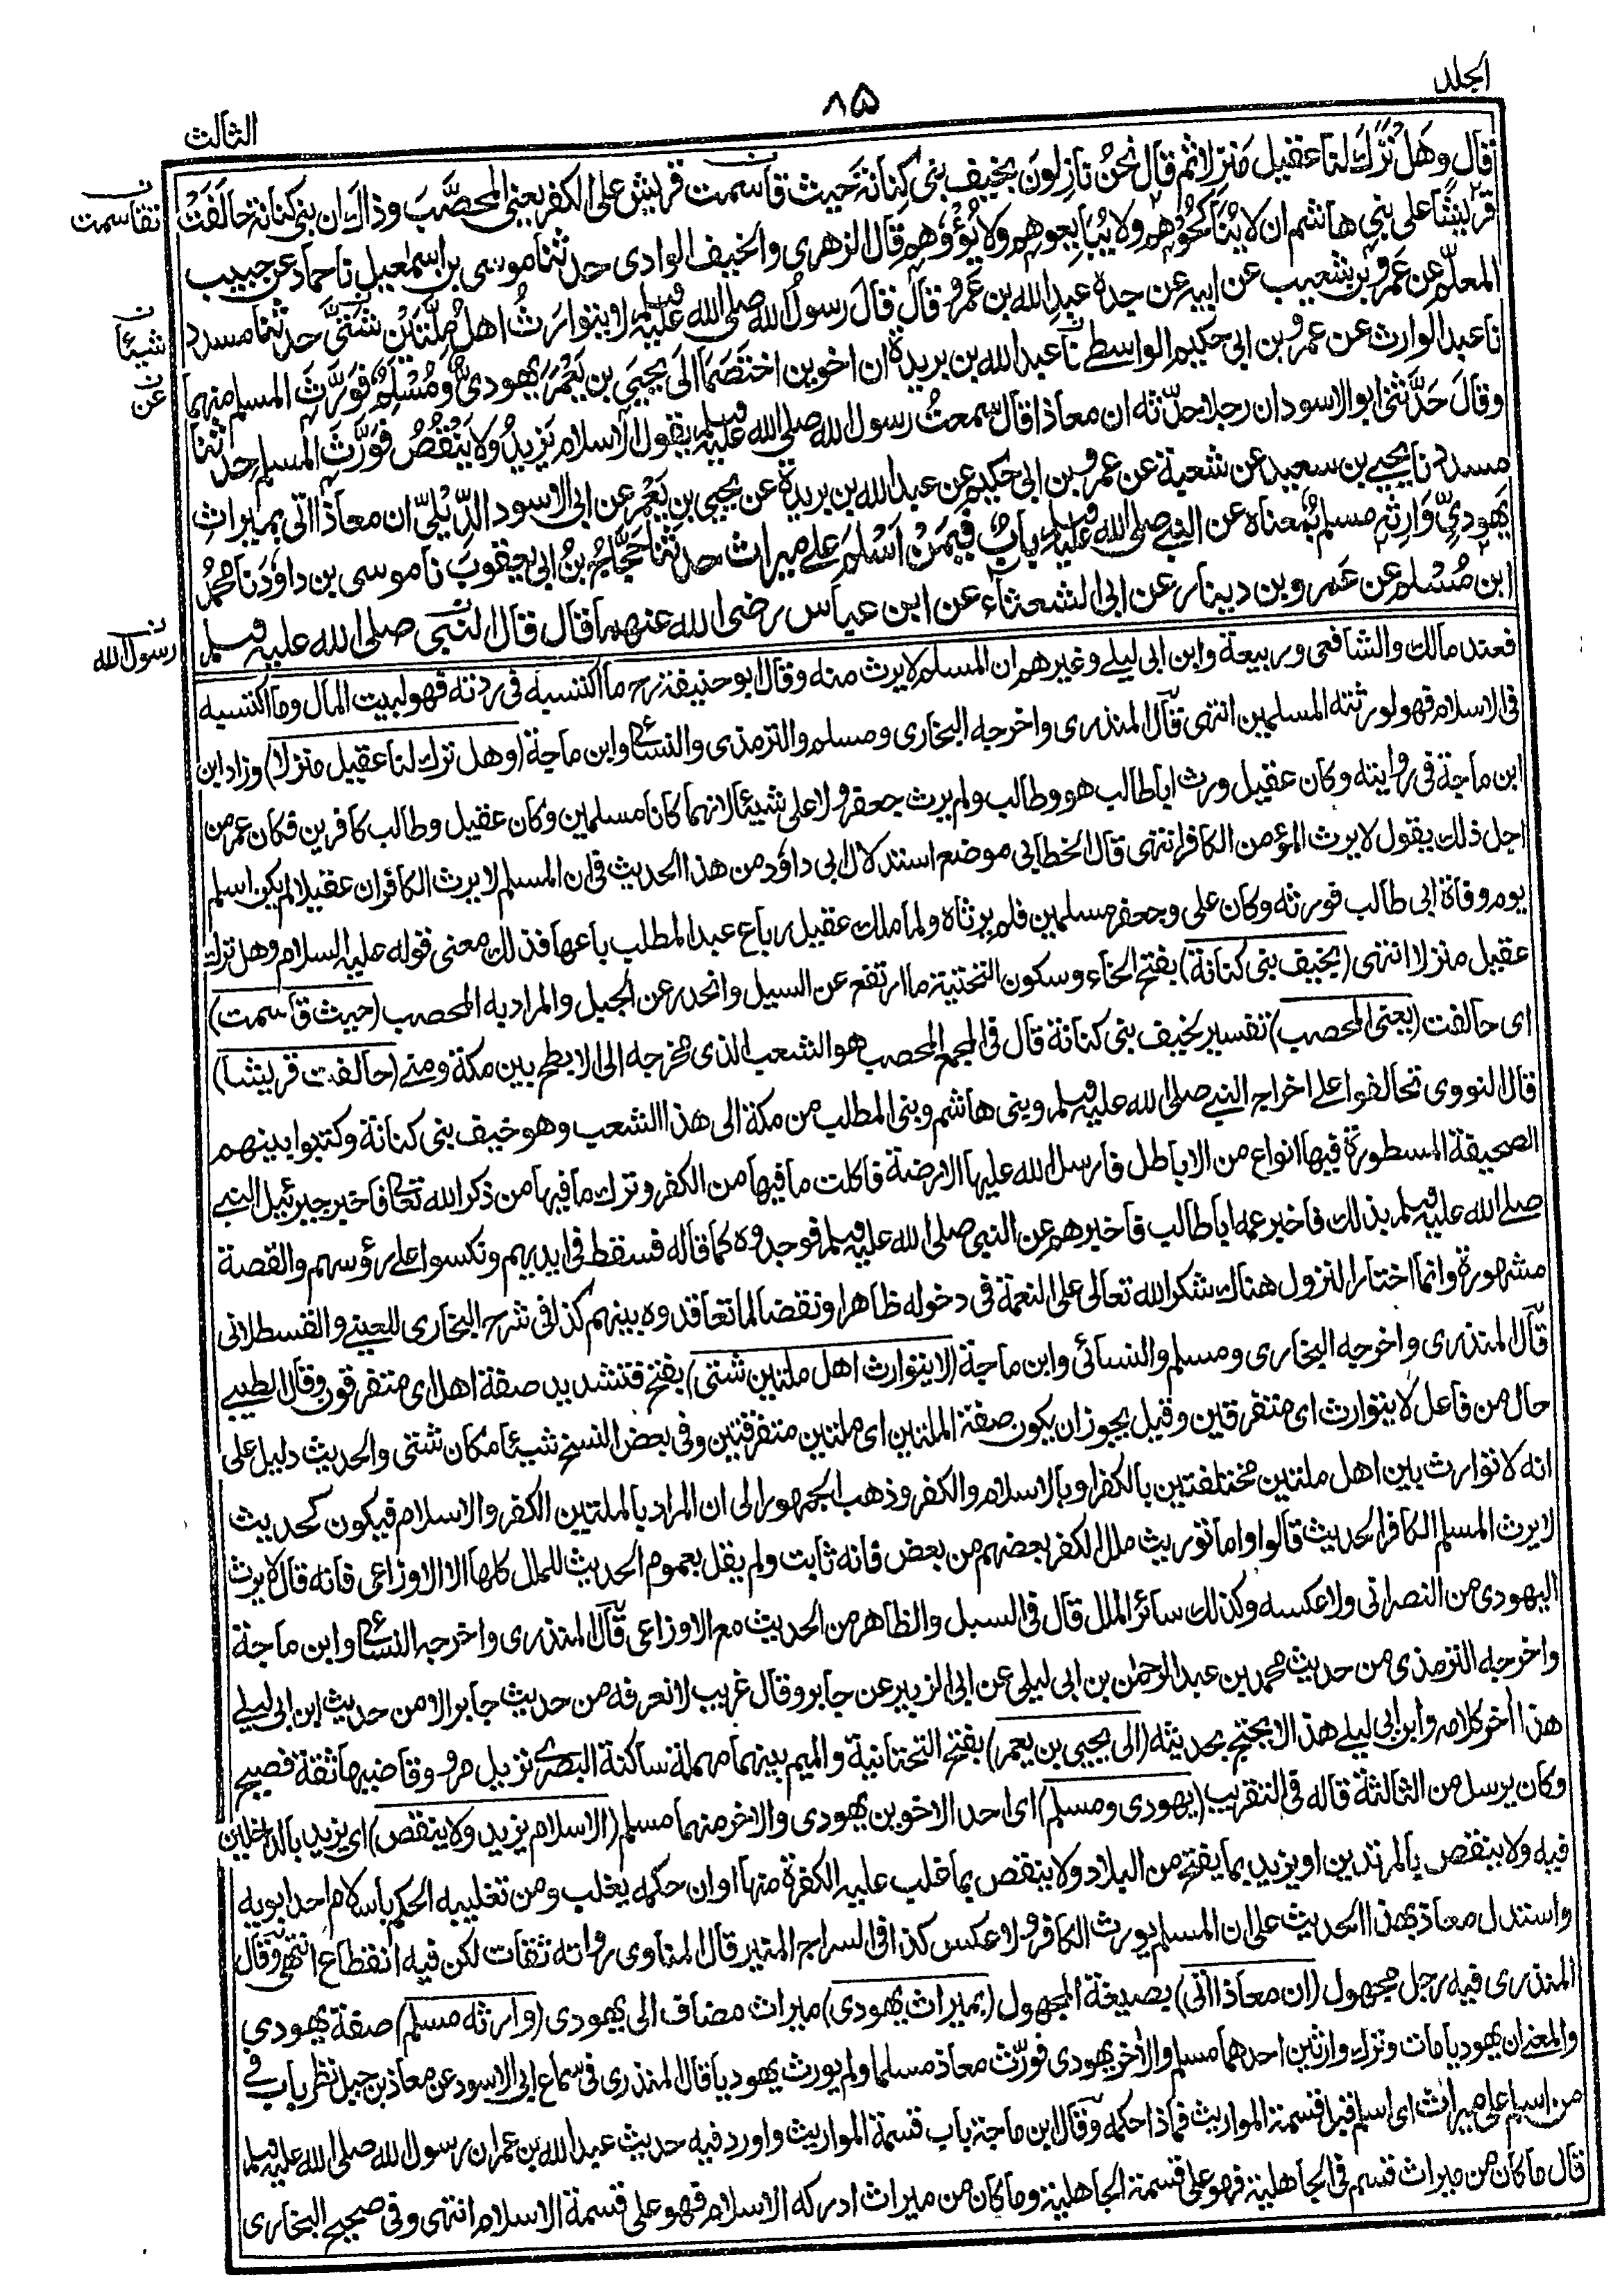 الجلد
٨٥
الثالث
قال وهَلْ تَرَكَ لنا عقيل مَنزلا ثم قَالَ نحْنُ نازِلونَ بخَيْفِ بني كِنَانَةَ حَيث قاسمت قريش على الكفر يعني المحصَّبَ وذاك ان بني كنانة حالَفَتْ
قريشًا على بني هاشم ان لا يُنَاكحُوْهم ولا يُبَايِعوهم ولا يُؤْوُهم قال الزهري والخيف الوادى حدثنا موسى بن اسمعيل نا حماد عن حبيب
المعلّم عن عَمرو بن شعيب عن ابيه عن جده عبدالله بن عَمْرو قال قال رسول الله صلى الله عليه وسلم لا يتوارثُ اهل مِلَّتَيْن شَتَّى حدثنا مسدد
نا عبد الوارث عن عمرو بن ابى حكيم الواسطے نا عبد الله بن بريدة ان اخوين اخْتَصَمَا الَى يحيَى بن يَعْمُرَ يهودىٌّ ومُسْلِمٌ فوَرَّثَ المسلم منهما
وقال حَدَّثنى ابو الاسود ان رجلا حدّثه ان معاذا قال سمعتُ رسول الله صلى الله عليه وسلم يقول الاسلام يزيدُ ولا يَنْقُصُ فوَرَّثَ المسلم حدثنا
مسدد نا يحيے بن سعيد عن شعبة عن عمرو بن ابى حكيم عن عبد الله بن بريدة عن يحيى بن يَعْمُر عن ابى الاسود الدِّيْلىّ ان معاذا اتى بميراث
يَهودىّ وَارِثه مسلم بمعناه عن النبے صلى الله عليه وسلم بابٌ فيمَنْ اَسْلَمَ علے ميراث حدثنا حَجَّاجُ بنُ ابى يعقوبَ نا موسى بن داوٗد نا محمدُ
ابن مُسْلم عن عمرو بن دينار عن ابى الشعثاء عن ابن عباس رضى الله عنهما قال قال النبى صلى الله عليه وسلم
تقاسمت
شيئًا
عن
رسول الله
فعند مالك والشافعى وربيعة وابن ابى ليلے وغيرهم ان المسلم لا يرث منه وقال ابو حنيفة رح ما اكتسبه فى ردته فهو لبيت المال وما اكتسبه
فى الاسلام فهو لورثته المسلمين انتهى قال المنذرى واخرجه البخارى ومسلم والترمذى والنسائى وابن ماجة (وهل ترك لنا عقيل منزلا) وزاد ابن
ابن ماجة فى روايته وكان عقيل ورث ابا طالب هو وطالب ولم يرث جعفر ولا على شيئا لانهما كانا مسلمين وكان عقيل وطالب كافرين فكان عمر من
اجل ذلك يقول لا يرث المؤمن الكافر انتهى قال الخطابى موضع استدلال ابى داوٗد من هذا الحديث فى ان المسلم لا يرث الكافر ان عقيلا لم يكن اسلم
يوم وفاة ابى طالب فورثه وكان على وجعفر مسلمين فلم يرثاه ولما ملك عقيل رباع عبد المطلب باعها فذلك معنى قوله عليه السلام وهل ترك
عقيل منزلا انتهى (بخيف بنى كنانة) بفتح الخاء وسكون التحتية ما ارتفع عن السيل وانحدر عن الجبل والمراد به المحصب (حيث قاسمت)
اى حالفت (يعنى المحصب) تفسير لخيف بنى كنانة قال فى المجمع المحصب هو الشعب الذى مخرجه الى الابطح بين مكة ومنے (حالفت قريشا)
قال النووى تحالفوا علے اخراج النبے صلى الله عليه وسلم وبنى هاشم وبنى المطلب من مكة الى هذا الشعب وهو خيف بنى كنانة وكتبوا بينهم
الصحيفة المسطورة فيها انواع من الاباطل فارسل الله عليها الارضة فاكلت ما فيها من الكفر وترك ما فيها من ذكر الله تعالى فاخبر جبرئيل النبے
صلے الله عليه وسلم بذلك فاخبر عمه ابا طالب فاخبرهم عن النبى صلى الله عليه وسلم فوجدوه كما قاله فسقط فى ايديهم ونكسوا علے رؤسهم والقصة
مشهورة وانما اختار النزول هناك شكر الله تعالى على النعمة فى دخوله ظاهرا ونقضا لما تعاقدوه بينهم كذا فى شرح البخارى للعينے والقسطلانى
قال المنذرى واخرجه البخارى ومسلم والنسائى وابن ماجة (لا يتوارث اهل ملتين شتى) بفتح فتشديد صفة اهل اى متفرقون وقال الطيبے
حال من فاعل لا يتوارث اى متفرقين وقيل يجوز ان يكون صفة الملتين اى ملتين متفرقتين وفى بعض النسخ شيئا مكان شتى والحديث دليل على
انه لا توارث بين اهل ملتين مختلفتين بالكفر او بالاسلام والكفر وذهب الجمهور الى ان المراد بالملتين الكفر والاسلام فيكون كحديث
لا يرث المسلم الكافر الحديث قالوا واما توريث ملل الكفر بعضهم من بعض فانه ثابت ولم يقل بعموم الحديث للملل كلها الا الاوزاعى فانه قال لا يرث
اليهودى من النصرانى ولا عكسه وكذلك سائر الملل قال فى السبل والظاهر من الحديث مع الاوزاعى قال المنذرى واخرجه النسائى وابن ماجة
واخرجه الترمذى من حديث محمد بن عبد الرحمٰن بن ابى ليلى عن ابى الزبير عن جابر وقال غريب لا نعرفه من حديث جابر الا من حديث ابن ابى ليلے
هذا اٰخر كلامه وابن ابى ليلے هذا لا يحتج بحديثه (الى يحيى بن يعمر) بفتح التحتانية والميم بينهما مهملة ساكنة البصرے نزيل مرو وقاضيها ثقة فصيح
وكان يرسل من الثالثة قاله فى التقريب (يهودى ومسلم) اى احد الاخوين يهودى والاخر منهما مسلم (الاسلام يزيد ولا ينقص) اى يزيد بالداخلين
فيه ولا ينقص بالمرتدين او يزيد بما يفتح من البلاد ولا ينقص بما غلب عليه الكفرة منها او ان حكمه يغلب ومن تغليبه الحكم باسلام احد ابويه
واستدل معاذ بهذا الحديث على ان المسلم يورث الكافر ولا عكس كذا فى السراج المنير قال المناوى رواته ثقات لكن فيه انقطاع انتهى وقال
المنذرى فيه رجل مجهول (ان معاذا اتى) بصيغة المجهول (بميراث يهودى) ميراث مضاف الى يهودى (وارثه مسلم) صفة يهودي
والمعنے ان يهوديا مات وترك وارثين احدهما مسلم والاٰخر يهودى فورّث معاذ مسلما ولم يورث يهوديا قال المنذرى فى سماع ابى الاسود عن معاذ بن جبل نظر باب فے
من اسلم على ميراث اى اسلم قبل قسمة المواريث فماذا حكمه وقال ابن ماجة باب قسمة المواريث واورد فيه حديث عبد الله بن عمر ان رسول الله صلى الله عليه وسلم
قال ما كان من ميراث قسم فى الجاهلية فهو على قسمة الجاهلية وما كان من ميراث ادركه الاسلام فهو على قسمة الاسلام انتهى وفى صحيح البخارى